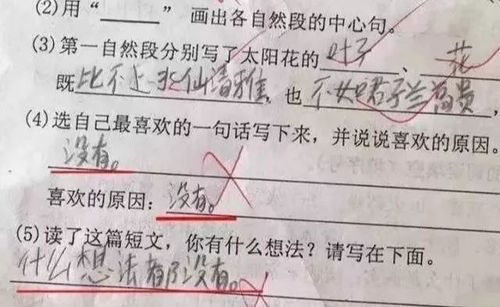 (2)用“______”画出各自然段的中心句。
(3)第一自然段分别写了太阳花的叶子、花
既比不上水仙清雅,也不如君子兰高贵,
(4)选自己最喜欢的一句话写下来,并说说喜欢的原因。
没有。
喜欢的原因:没有。
(5)读了这篇短文,你有什么想法?请写在下面。
什么想法都没有。